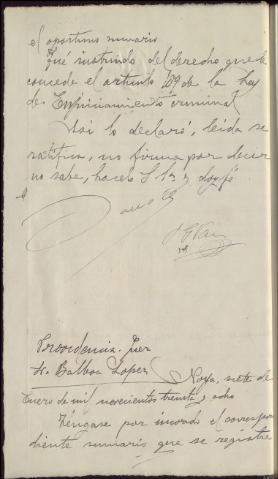 el oportuno sumario
Que instruido del derecho que le
concede el articulo 109 de la Ley
de Enjuiciamiento criminal
Asi lo declaró, leida se
ratifica, no firma por decir
no saber, hacelo S Sª y doy fé
Providencia. Juez
Sr. Balboa Lopez Noya, siete de
Enero de mil novecientos treinta y ocho
Téngase por incoado el correspon
diente sumario que se registre